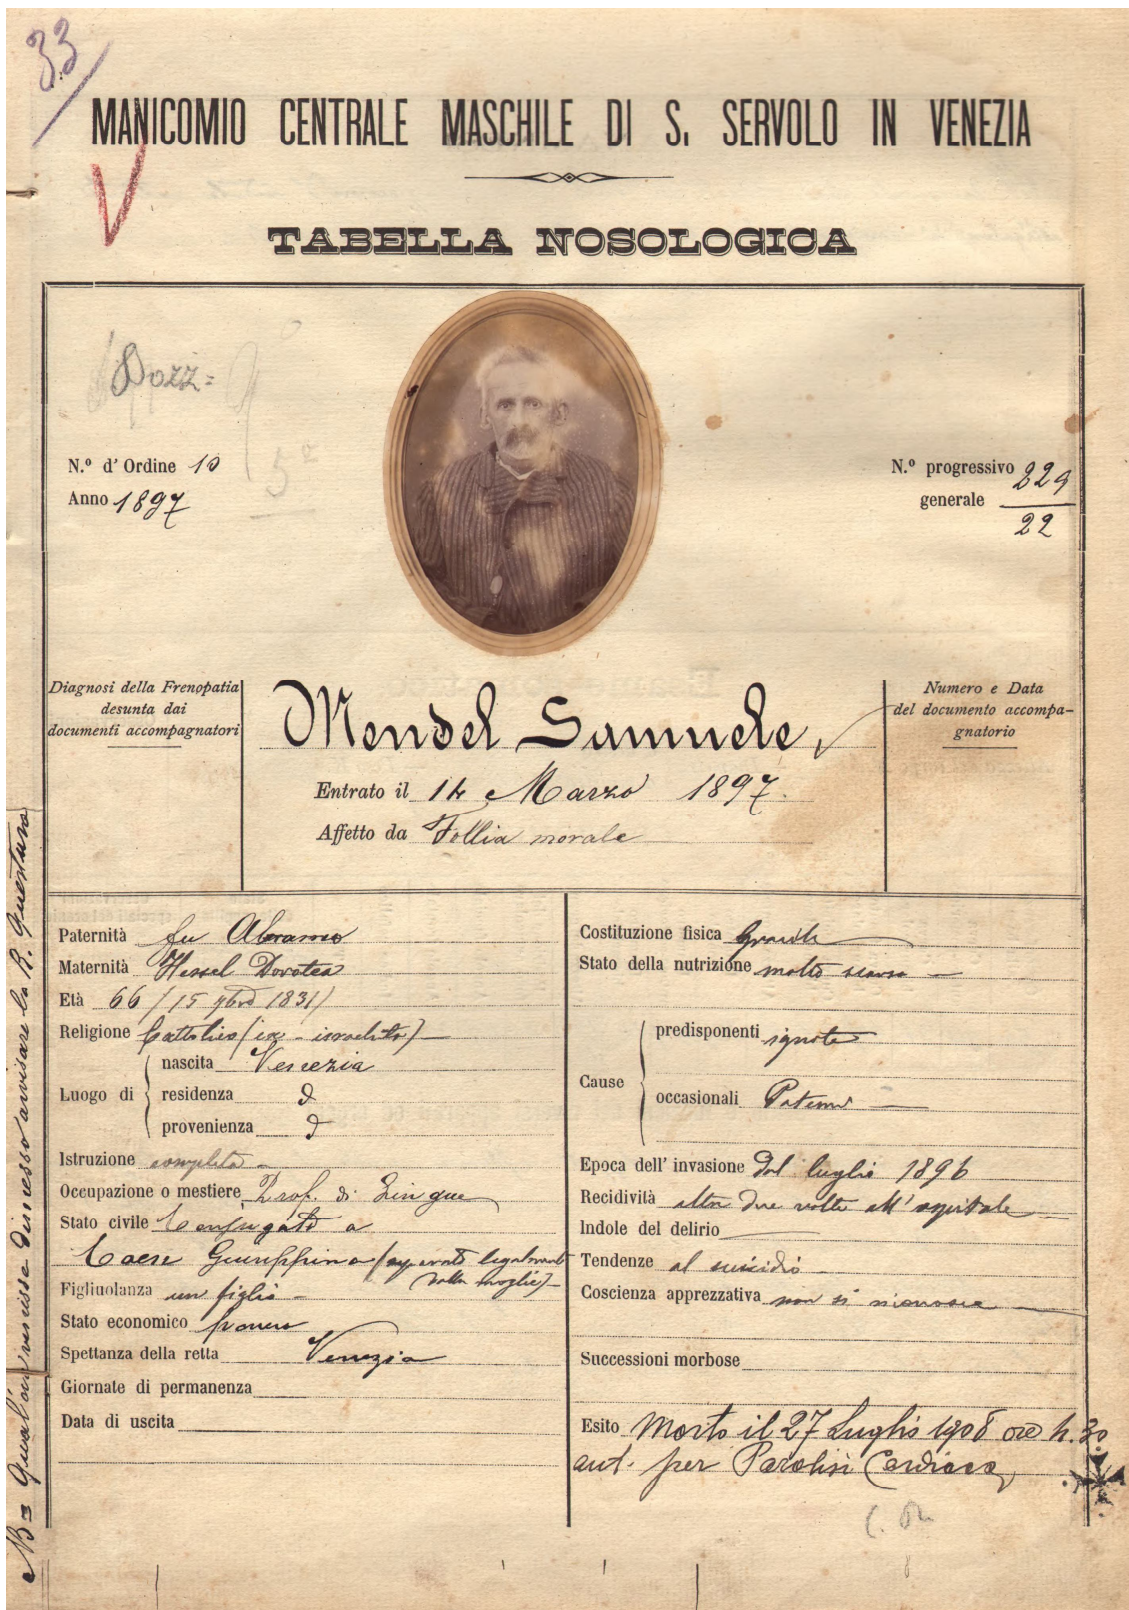 33
MANICOMIO CENTRALE MASCHILE DI S. SERVOLO IN VENEZIA
TABELLA NOSOLOGICA
Dozz=
5ª
N.º d' Ordine 10
Anno 1897
N.º progressivo 229
generale 22
Diagnosi della Frenopatia
desunta dai
documenti accompagnatori
Mendel Samuele
Entrato il 14 Marzo 1897.
Affetto da Follia morale
Numero e Data
del documento accompa-
gnatorio
Paternità fu Abramo
Maternità Hessel Dorotea
Età 66 / 15 9bre 1831/
Religione Cattolica (ex-israelita)
Luogo di
nascita Venezia
residenza
provenienza
Istruzione completa
Occupazione o mestiere Prof. di Lingue
Stato civile Coniugato a
Giuseppina (separato legalmente
dalla moglie)
Figliuolanza un figlio
Stato economico povero
Spettanza della retta Venezia
Giornate di permanenza
Data di uscita
Costituzione fisica Gracile
Stato della nutrizione molto scarsa
Cause
predisponenti ignote
occasionali Patemi
Epoca dell' invasione Dal luglio 1896
Recidività altre due volte all' ospitale
Indole del delirio
Tendenze al suicidio
Coscienza apprezzativa non si riconosce
Successioni morbose
Esito Morto il 27 Luglio 1908 ore 4.30
ant. per Paralisi Cardiaca
NB= Qualora venisse dimesso avvisare la R. Questura